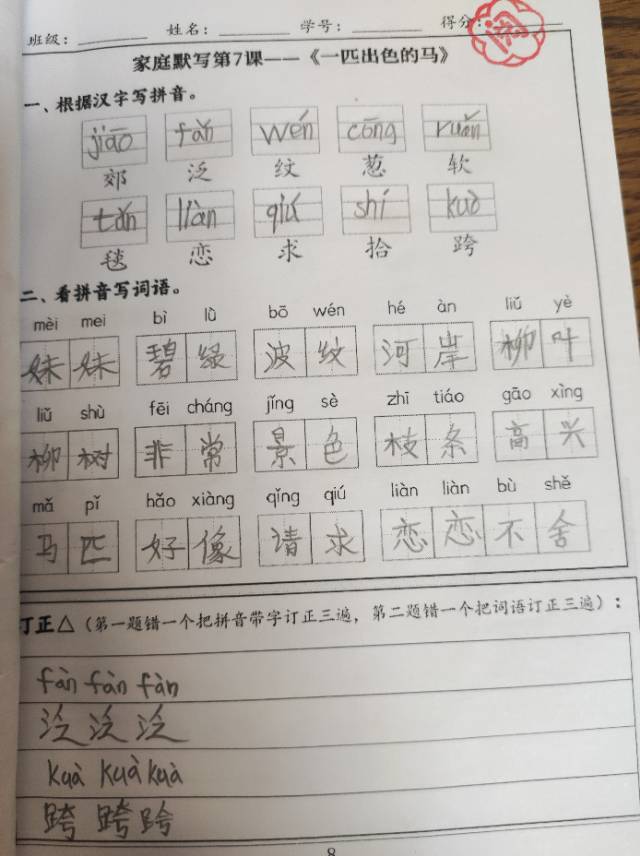 班级：
姓名：
学号：
得分：
家庭默写第7课——《一匹出色的马》
一、根据汉字写拼音。
jiāo fǎn wén cōng ruǎn
郊 泛 纹 葱 软
tǎn liàn qiú shí kuò
毯 恋 求 拾 跨
二、看拼音写词语。
mèi mei bì lǜ bō wén hé àn liǔ yè
妹妹 碧绿 波纹 河岸 柳叶
liǔ shù fēi cháng jǐng sè zhī tiáo gāo xìng
柳树 非常 景色 枝条 高兴
mǎ pǐ hǎo xiàng qǐng qiú liàn liàn bù shě
马匹 好像 请求 恋恋不舍
订正△（第一题错一个把拼音带字订正三遍，第二题错一个把词语订正三遍）：
fàn fàn fàn
泛 泛 泛
kuà kuà kuà
跨 跨 跨
8